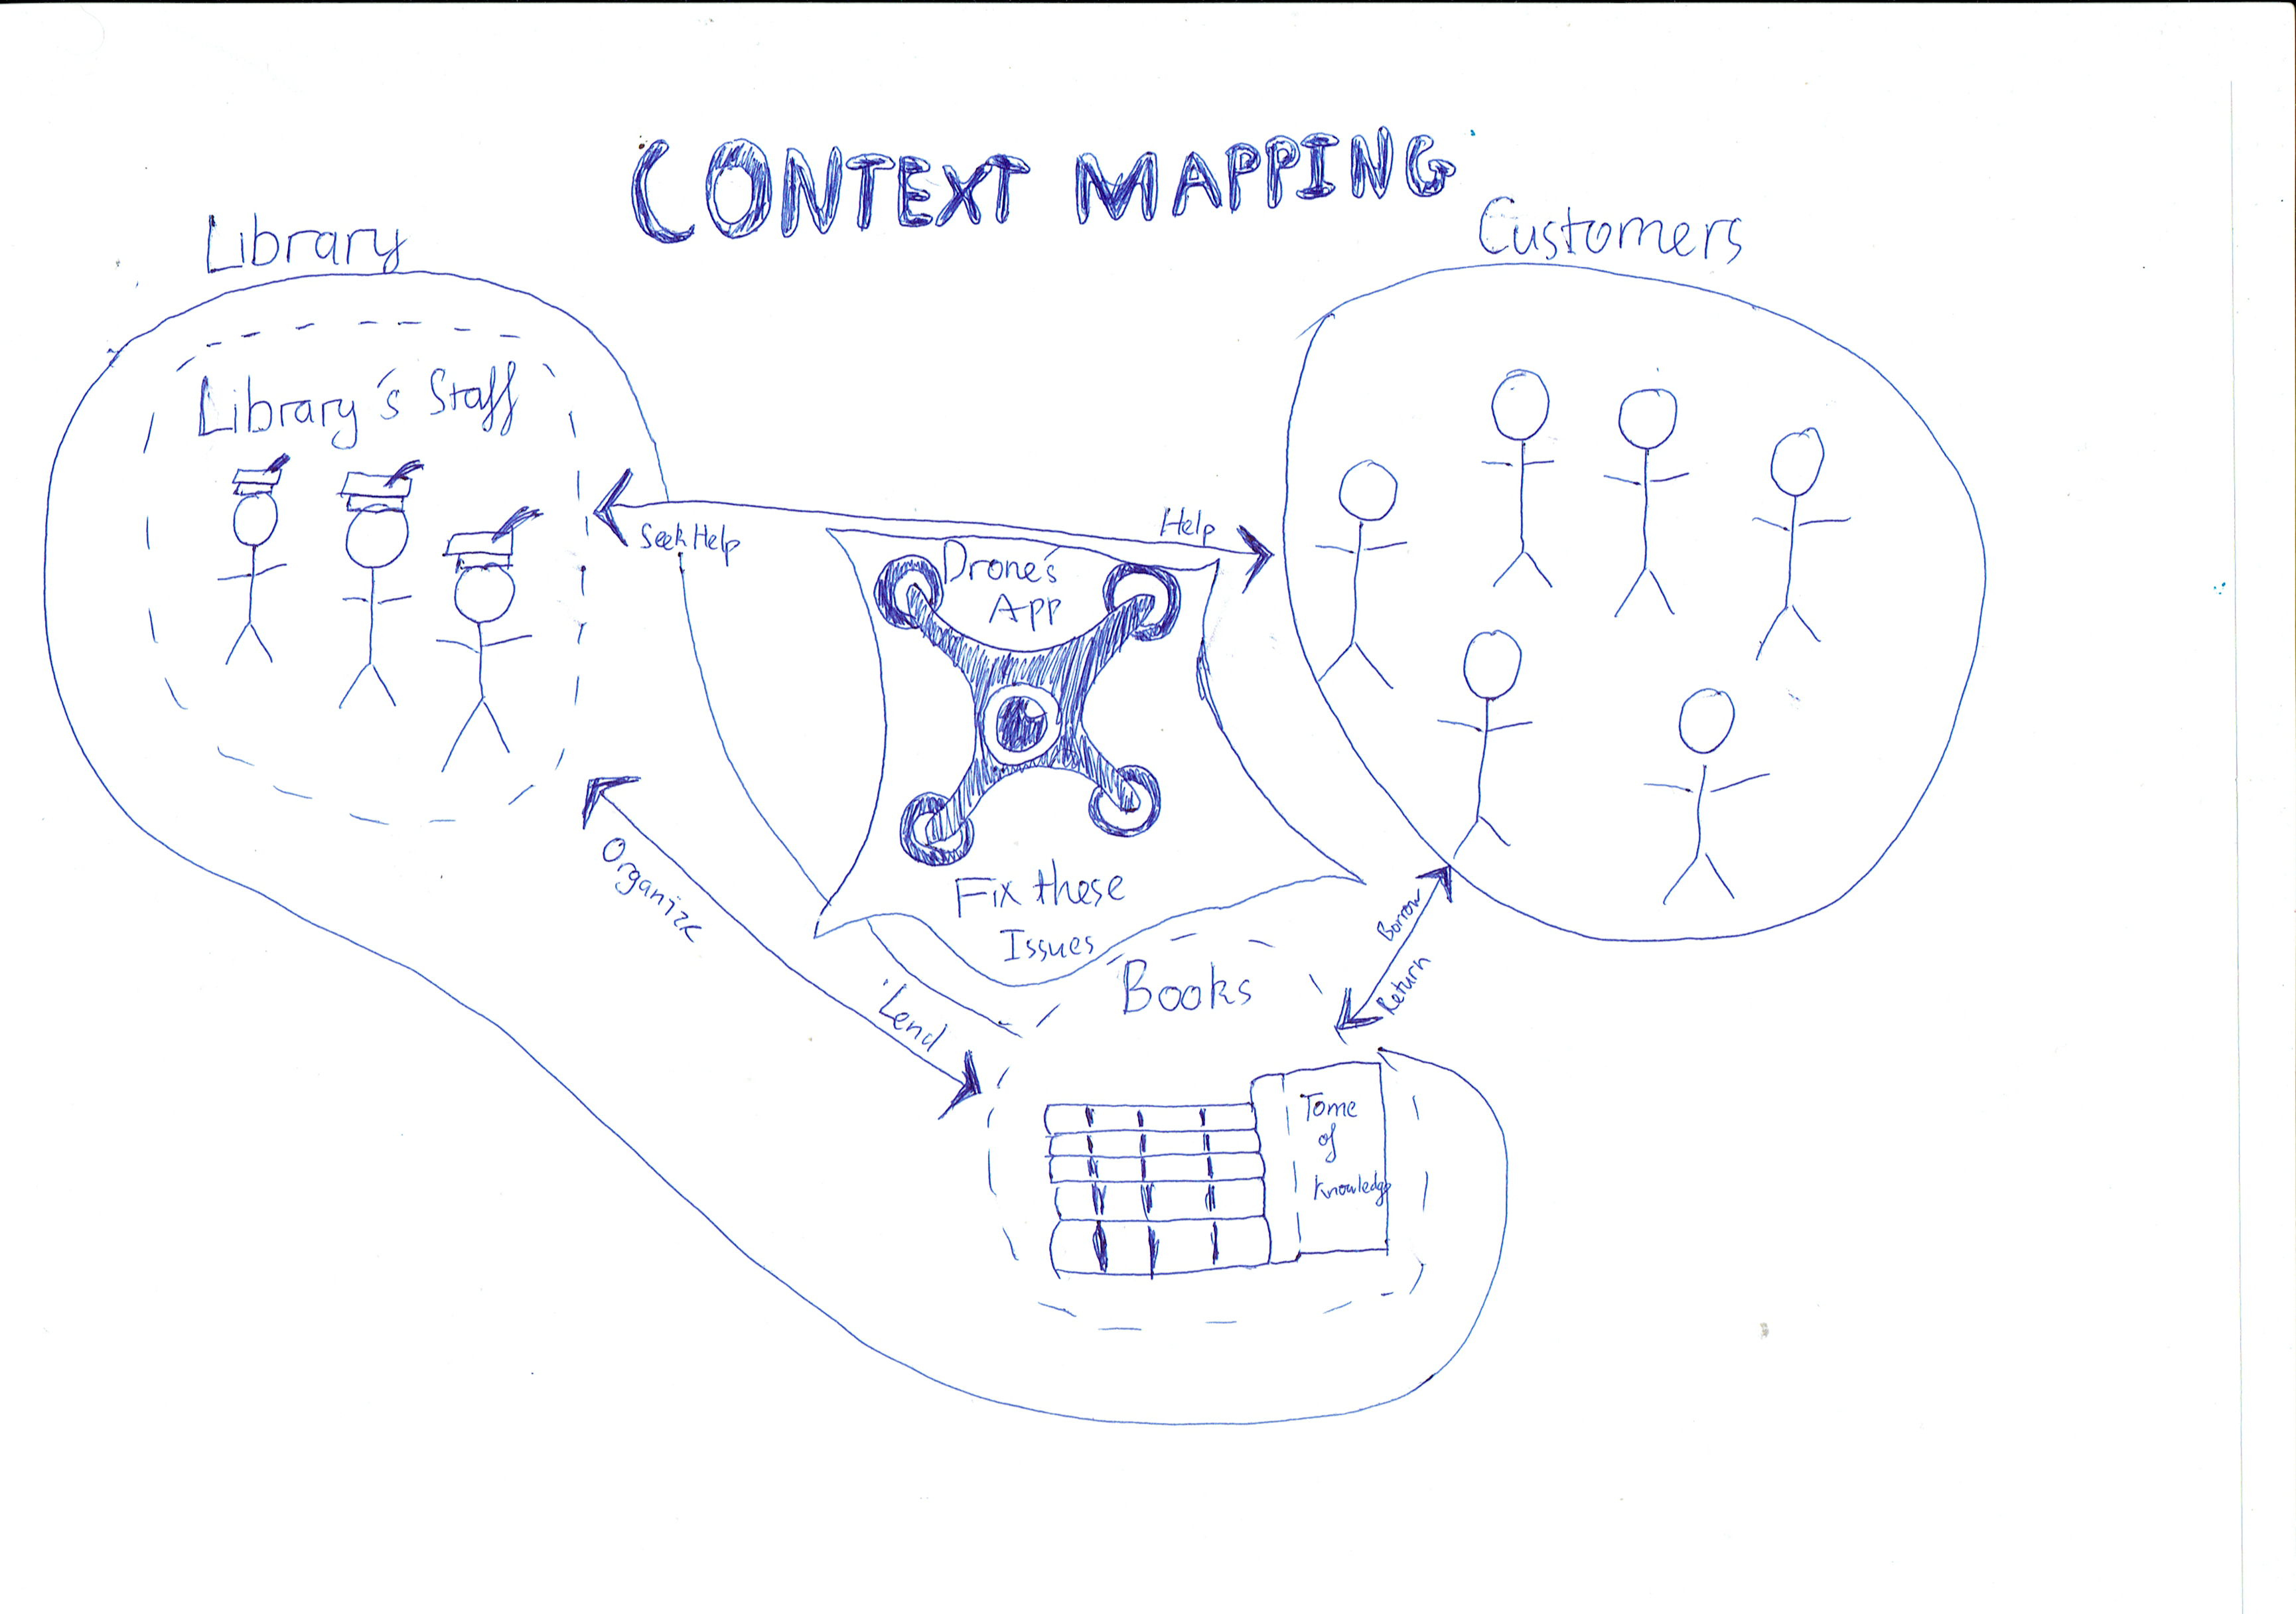 CONTEXT MAPPING
Library
Customers
Library's Staff
Seek Help
Help
Drone's
App
Fix these
Issues
Organize
Lend
Borrow
Return
Books
Tome
of
Knowledge